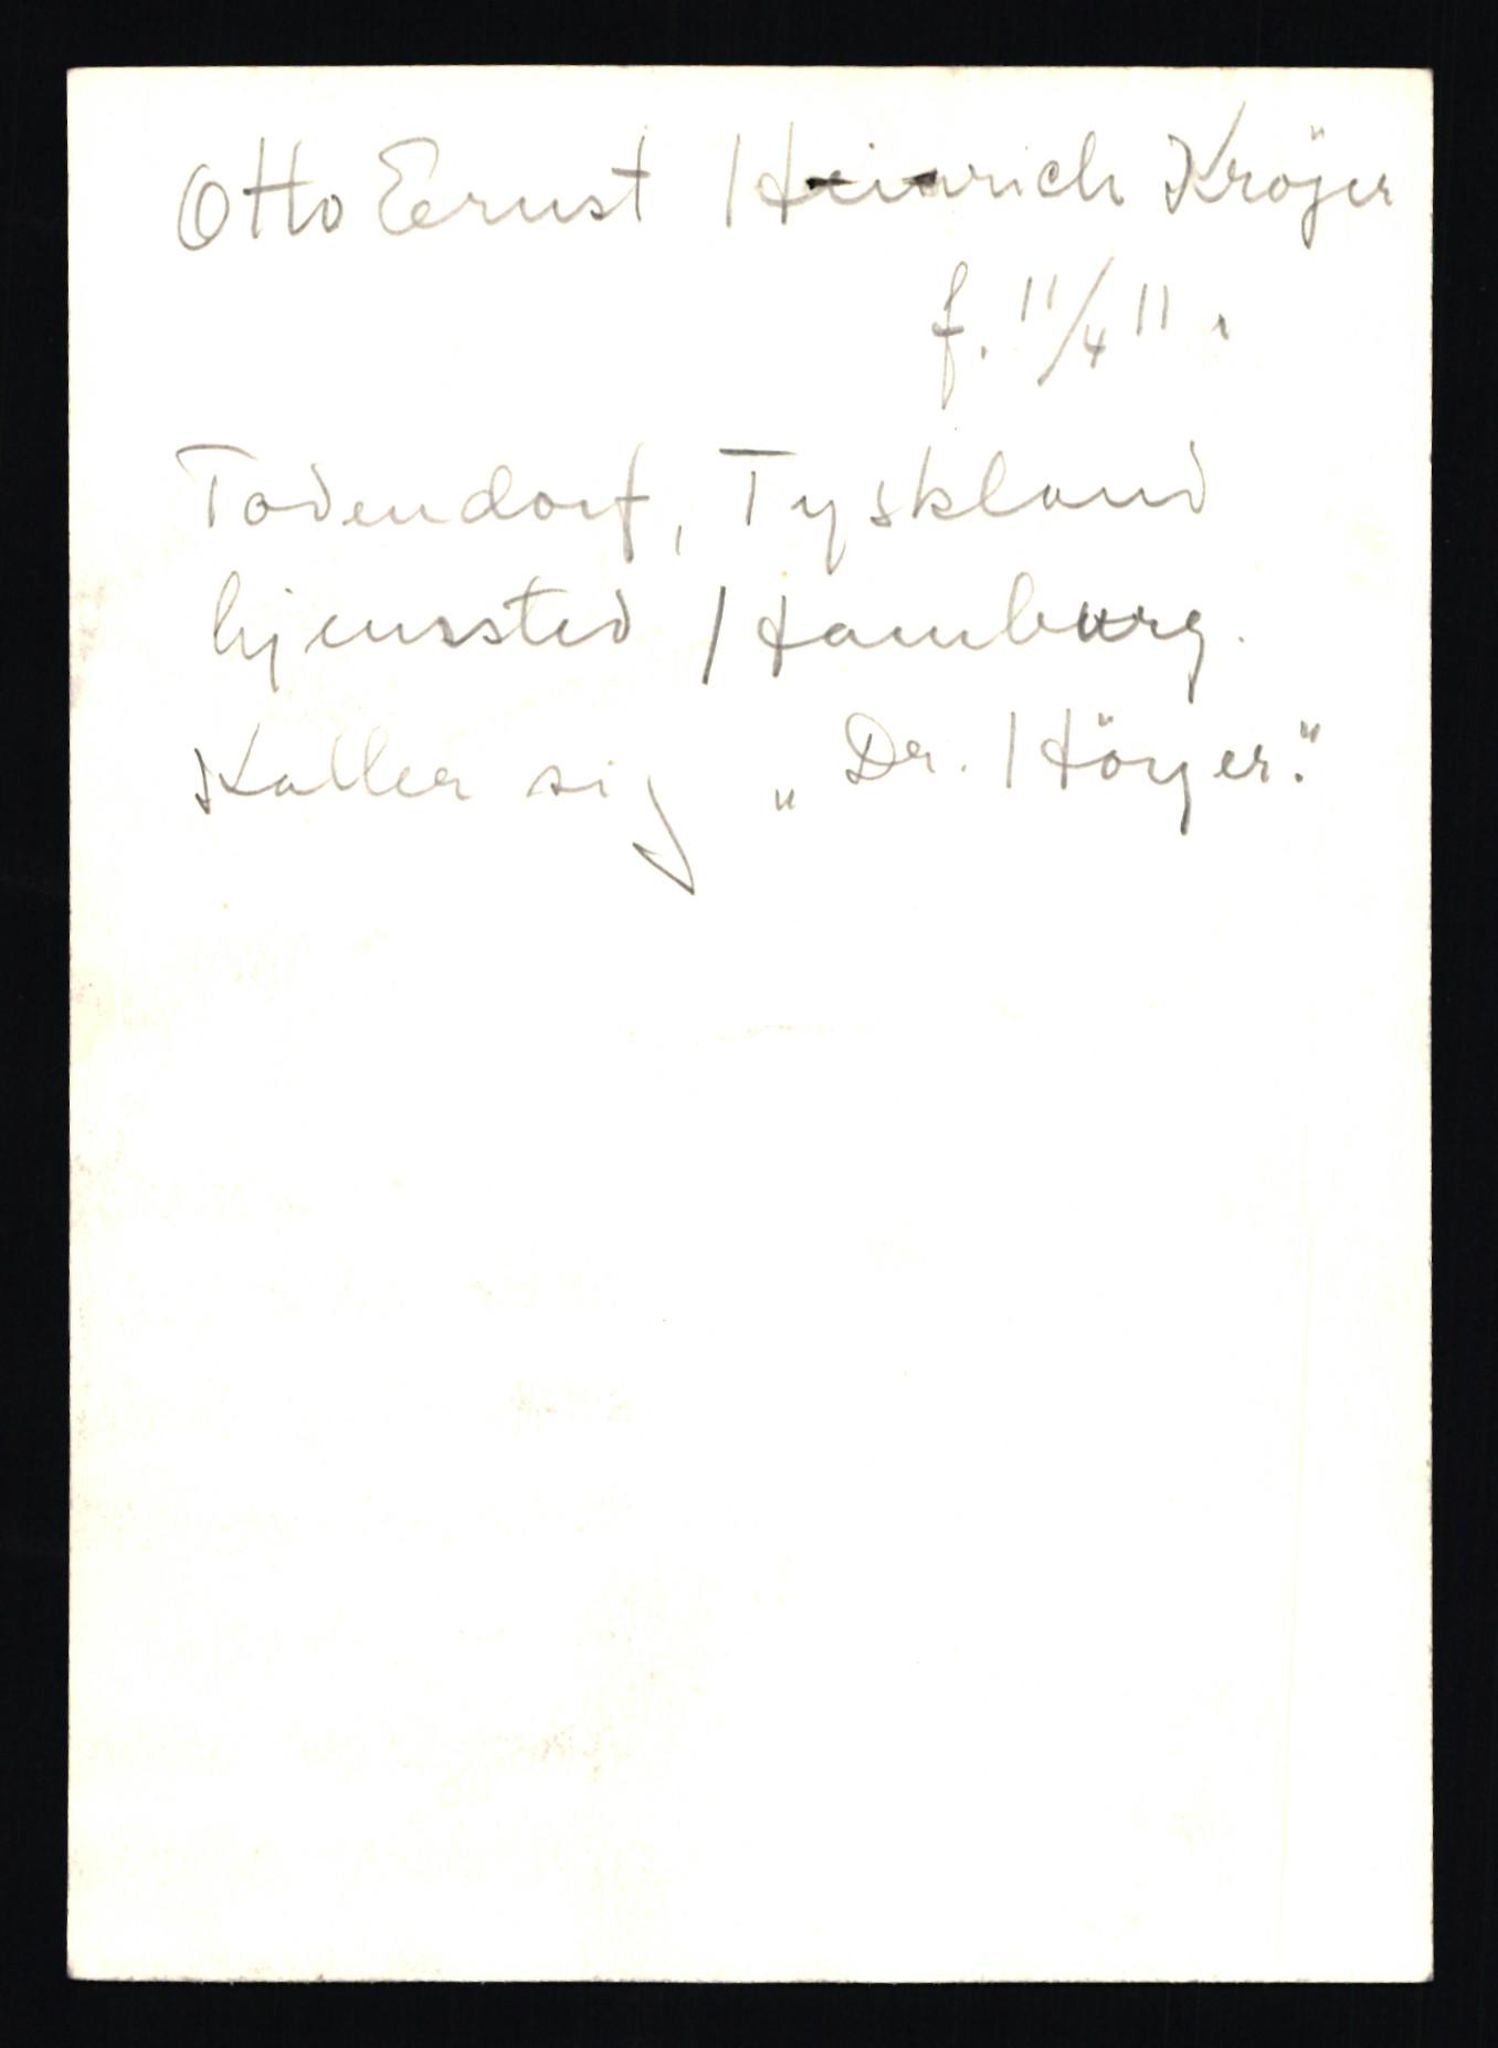 Otto Ernst Heinrich Kröger
f. 11/4 11.
Todendorf, Tyskland
hjemsted Hamburg.
Kaller sig „Dr. Höyer."